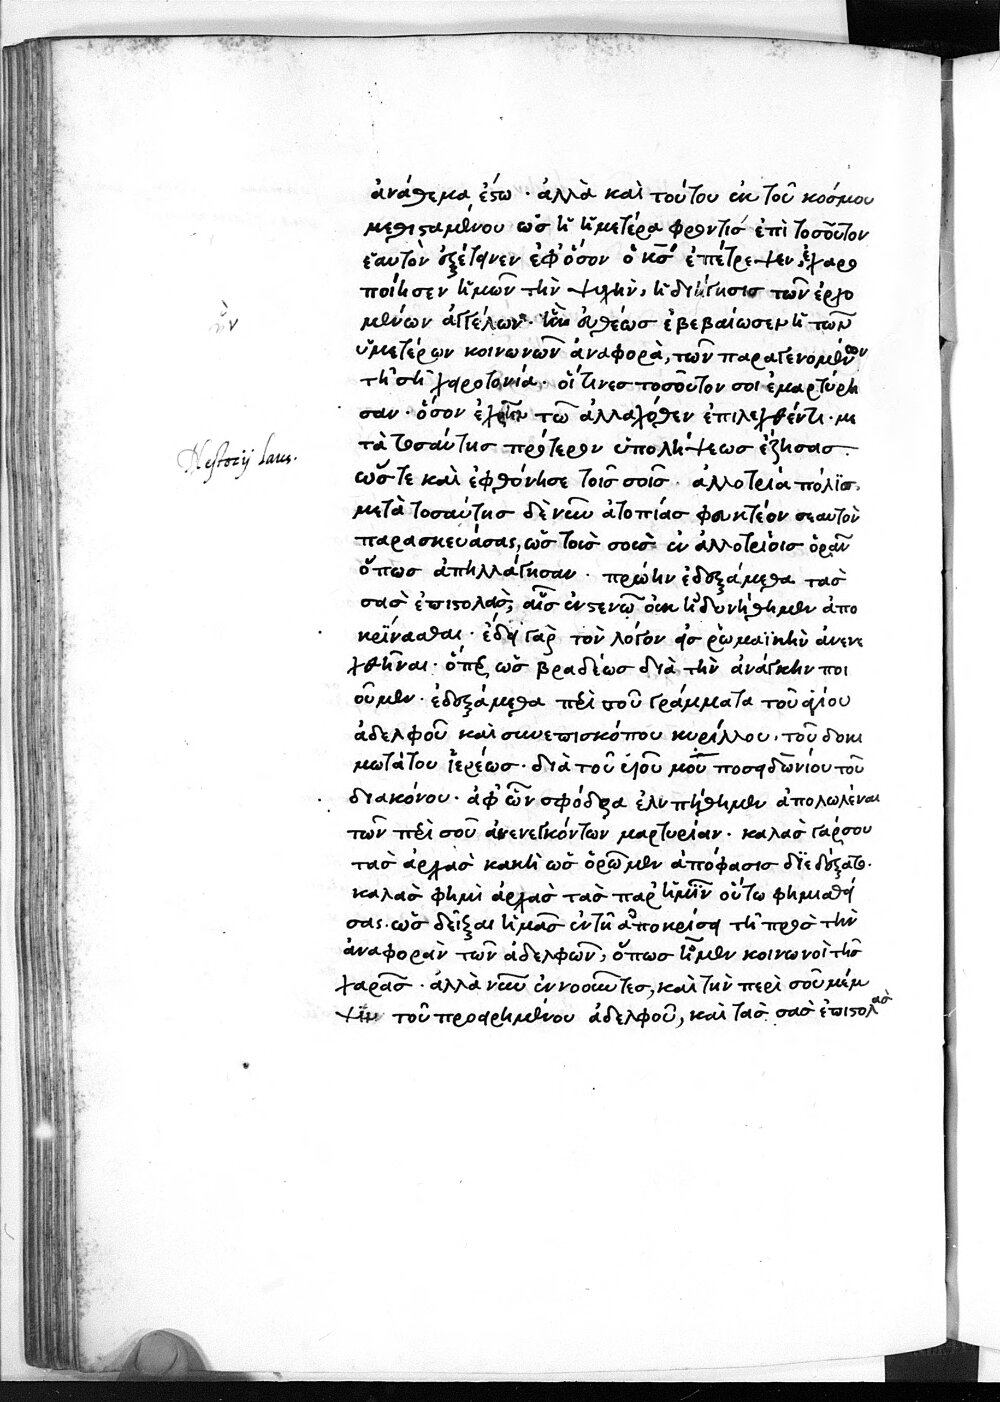 ἀνάθεμα ἔστω · ἀλλὰ καὶ τούτου ἐκ τοῦ κόσμου
μεθισταμένου ὡς ἡ ἡμετέρα φροντὶς ἐπὶ τοσοῦτον
ἑαυτὸν ἐξέτεινεν ἐφ' ὅσον ὁ κς ἐπέτρεψεν, ἐχαρο
ποίησεν ἡμῶν τὴν ψυχὴν, ἡ διήγησις τῶν ἐρχο
μένων ἀγγέλων · ἣν εὐθέως ἐβεβαίωσεν ἡ τῶν
ὑμετέρων κοινωνῶν ἀναφορὰ, τῶν παραγενομένων
τῆ σῆ χειροτονία · οἵτινες τοσοῦτον σοι ἐμαρτύρη
σαν · ὅσον ἐχρῆν τῶ ἀλλαχόθεν ἐπιλεχθέντι · με
τὰ τοσαύτης πρότερον ὑπολήψεως ἔζησας ·
ὥστε καὶ ἐφθόνησε τοῖς σοῖς ἀλλοτρία πόλις,
μετὰ τοσαύτης δὲ νῦν ἀτοπίας φευκτέον σεαυτὸν
παρασκευάσας, ὡς τοὺς σοὺς ἐν ἀλλοτρίοις ὁρᾶν
ὅπως ἀπηλλάγησαν · πρώην ἐδεξάμεθα τὰς
σὰς ἐπιστολὰς, αἷς ἐν στενῶ οὐκ ἠδυνήθημεν ἀπο
κρίνασθαι · ἔδει γὰρ τὸν λόγον εἰς ῥωμαϊκὴν ἀνενε
χθῆναι · ὅπερ ὡς βραδέως διὰ τὴν ἀνάγκην ποι
οῦμεν · ἐδεξάμεθα περὶ σοῦ γράμματα τοῦ ἁγίου
ἀδελφοῦ καὶ συνεπισκόπου κυρίλλου, τοῦ δοκι
μωτάτου ἱερέως · διὰ τοῦ υἱοῦ μου ποσειδωνίου τοῦ
διακόνου · ἀφ' ὧν σφόδρα ἐλυπήθημεν ἀπολωλέναι
τῶν περὶ σοῦ ἀνενεγκόντων μαρτυρίαν · καλὰς γάρ σου
τὰς ἀρχὰς κακὴ ὡς ὁρῶμεν ἀπόφασις διεδέξατο ·
καλὰς φημὶ ἀρχὰς τὰς παρ' ἡμῖν οὕτω φημισθεί
σας · ὡς δεῖξαι ἡμᾶς ἐν τῆ ἀποκρίσει τῆ πρὸς τὴν
ἀναφορὰν τῶν ἀδελφῶν, ὅπως ἦμεν κοινωνοὶ τῆς
χαρᾶς · ἀλλὰ νῦν ἐννοοῦντες, καὶ τὴν περὶ σοῦ μέμ
ψιν τοῦ προειρημένου ἀδελφοῦ, καὶ τὰς σὰς ἐπιστολὰς
ὧν
Nestorij laus.